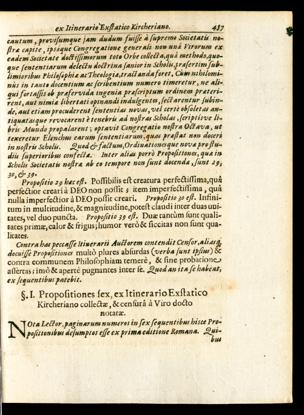 ex Itinerario Exstatico Kircheriano. 487
cautum, provisumque jam dudum fuisse à supremo Societatis no-
stræ capite, ipsaque Congregatione generali non unà Virorum ex
eadem Societate doctissimorum toto Orbe collecta, quâ methodo, quo-
que sententiarum delectu doctrina junior in Scholis, præsertim sub-
limioribus Philosophiæ ac Theologiæ, tractanda foret. Cum nihilomi-
nus in tanta docentium ac scribentium numerositate, nonnulli, ali-
quos fortassis ob præfervida ingenia præscriptum ordinem præteri-
rent, aut nimia libertati opinandi indulgentes, sectarentur subin-
de, aut etiam procuderent sententias novas, vel certè obsoletæ an-
tiquitatis que revocarent è tenebris ad nostras Scholas, scriptisve li-
bris Mundo propalarent; optavit Congregatio nostra Octava, ut
texeretur Elenchus earum sententiarum, quas præstat non doceri
in nostris Scholis. Quod & factum, Ordinationeque nova pro stu-
diis superioribus confecta. Inter alias porrò Propositiones, quæ in
Scholis Societatis nostræ ab eo tempore non sunt docendæ, sunt 29,
30, & 39.
Propositio 29 hæc est. Possibilis est creatura perfectissima, quâ
perfectior creari à DEO non possit; item imperfectissima, quâ
nulla imperfectior à DEO possit creari. Propositio 30 est. Infini-
tum in multitudine, & magnitudine, potest claudi inter duas uni-
tates, vel duo puncta. Propositio 39 est. Duæ cantùm sunt quali-
tates primæ, calor & frigus; humor verò & siccitas non sunt qua-
litates.
Contra has peccasse Itinerarii Auctorem contendit Censor, aliasq;
docuisse Propositiones multò plures absurdas (verba sunt ipsius) &
contra communem Philosophiam temerè, & sine probatione,
assertas; imò & apertè pugnantes inter se. Quod an ita se habeat,
ex sequentibus patebit.
§. I. Propositiones sex, ex Itinerario Exstatico
Kircheriano collectæ, & censurâ à Viro docto
notatæ.
Nota Lector, paginarum numeros in sex sequentibus hisce Pro-
positionibus desumptos esse ex prima editione Romana. Qui-
bus